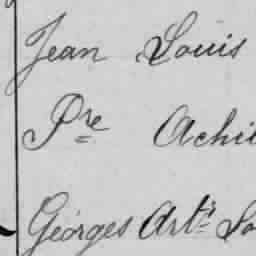 Jean Louis
Pre Achil
Georges Artr Lo